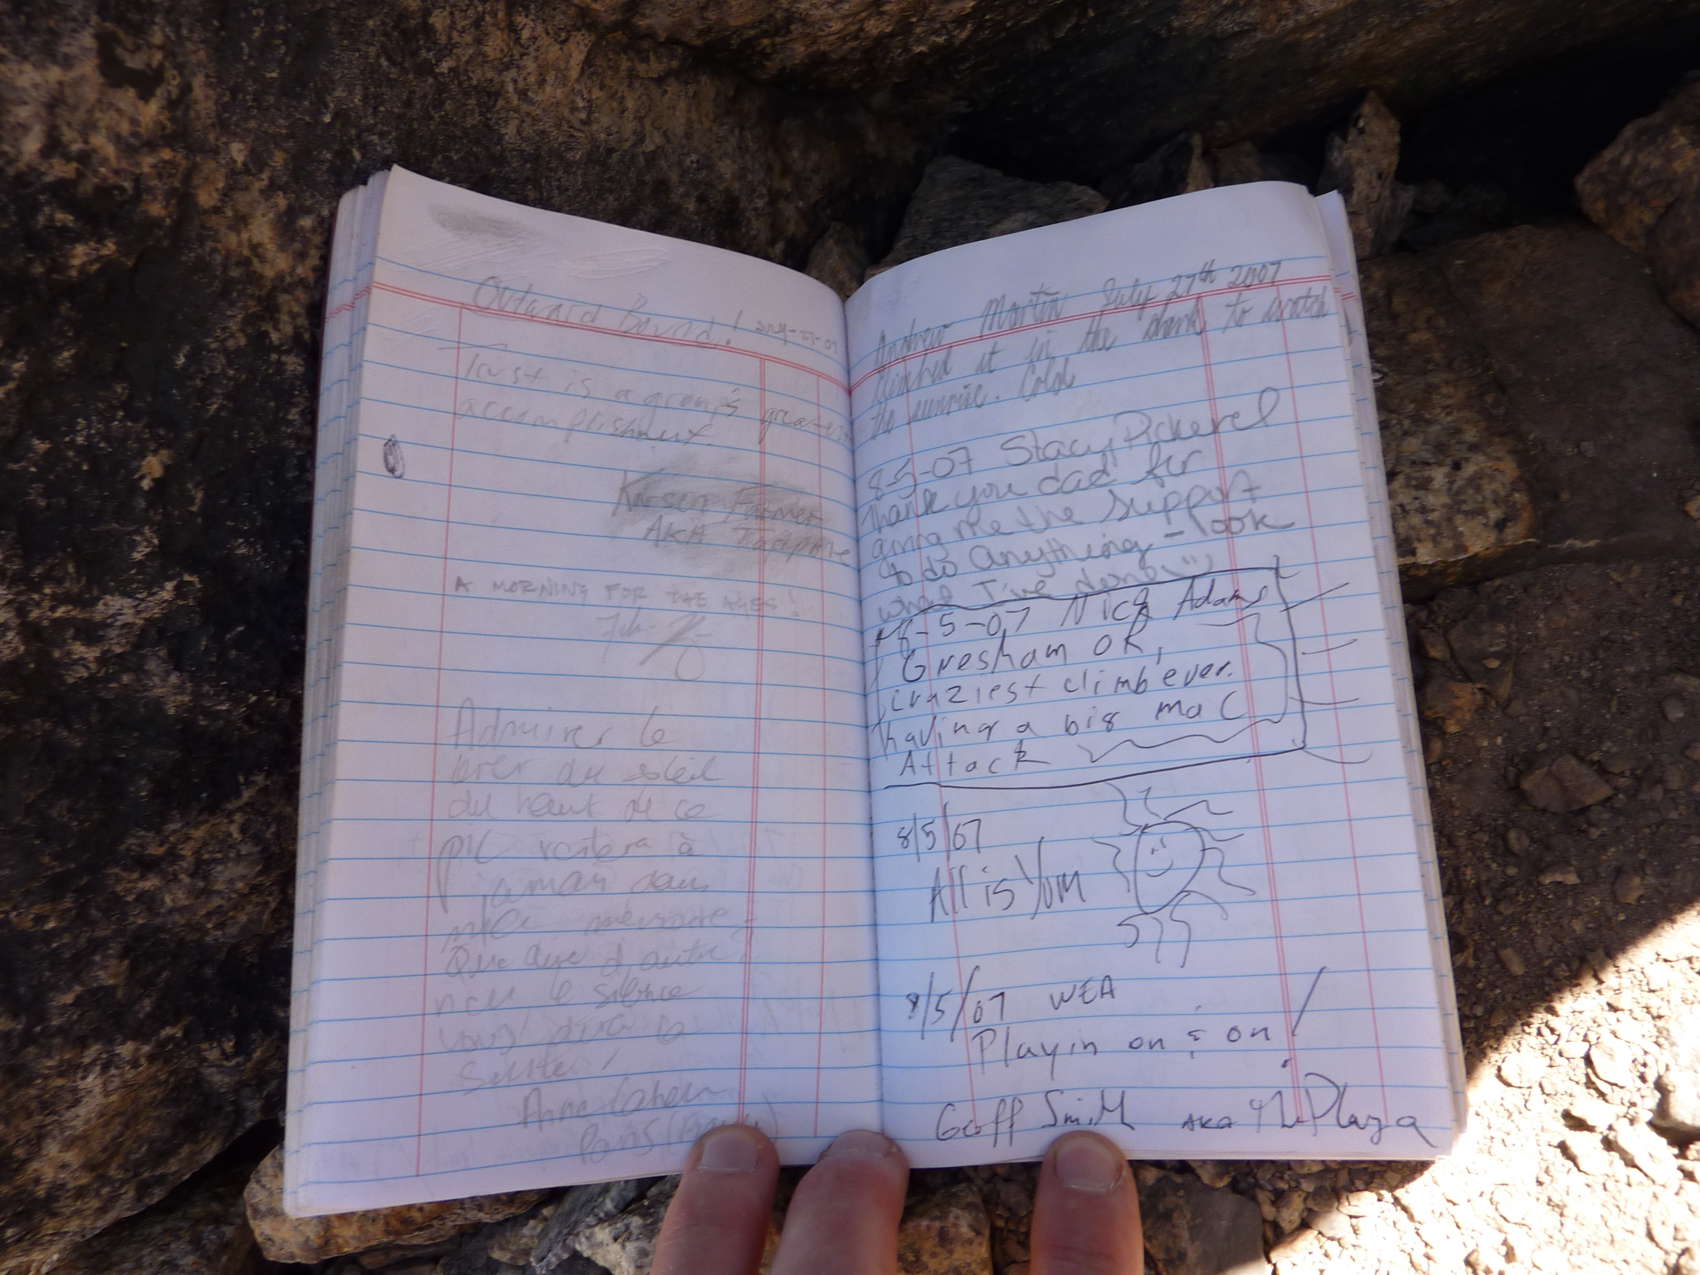 Outward Bound!
Trust is a group's greatest
accomplishment
AKA
A MORNING FOR THE AGES!
Admirer le
lever du soleil
du haut de ce
pic restera à
jamais dans
Que dire d'autre
le silence
Paris
Andrew Martin July 27th 2007
it in the dark to watch
the sunrise. Cold
8-5-07 Stacy Pickerel
Thank you dad for
giving me the support
to do anything - look
what I've done
8-5-07 Nick Adams
Gresham OR,
craziest climb ever.
having a big mac
Attack
8/5/07
All is Yum
8/5/07 WEA
Playin on & on!
Geoff Smith AKA